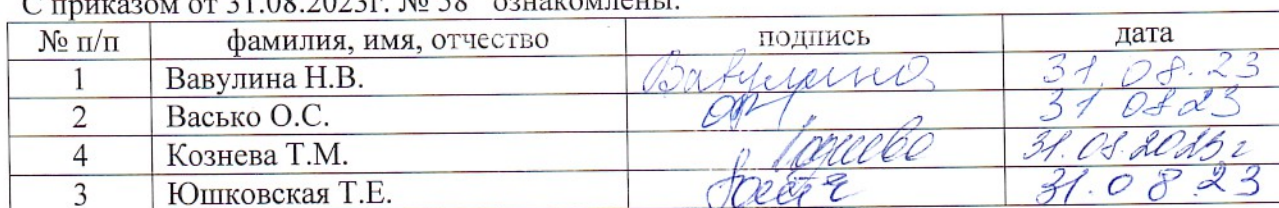 С приказом от 31.08.2023г. № 58 ознакомлены:
№ п/п фамилия, имя, отчество подпись дата
1 Вавулина Н.В. Вавулина 31.08.23
2 Васько О.С. 31 08 23
4 Кознева Т.М. Кознева 31.08.2023г
3 Юшковская Т.Е. 31.08 23